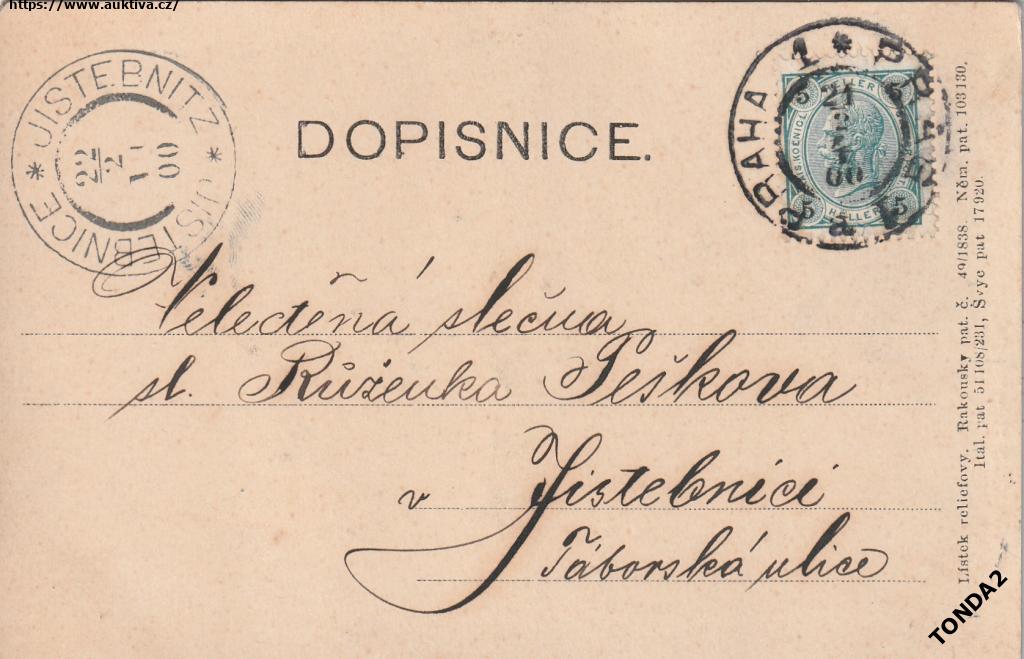 https://www.auktiva.cz/
* JISTEBNITZ * JISTEBNICE
22
2
00
DOPISNICE.
PRAHA 1 *
21
00
5 HELLER 5
5 HELLER 5
Velectěná slečna
sl. Růženka Pešková
v Jistebnici
Táborská ulice
Lístek reliefovy. Rakousky pat. č. 49/1838. Něm. pat. 103130.
Ital. pat 51108/231, Švyc pat 17920.
TONDA2